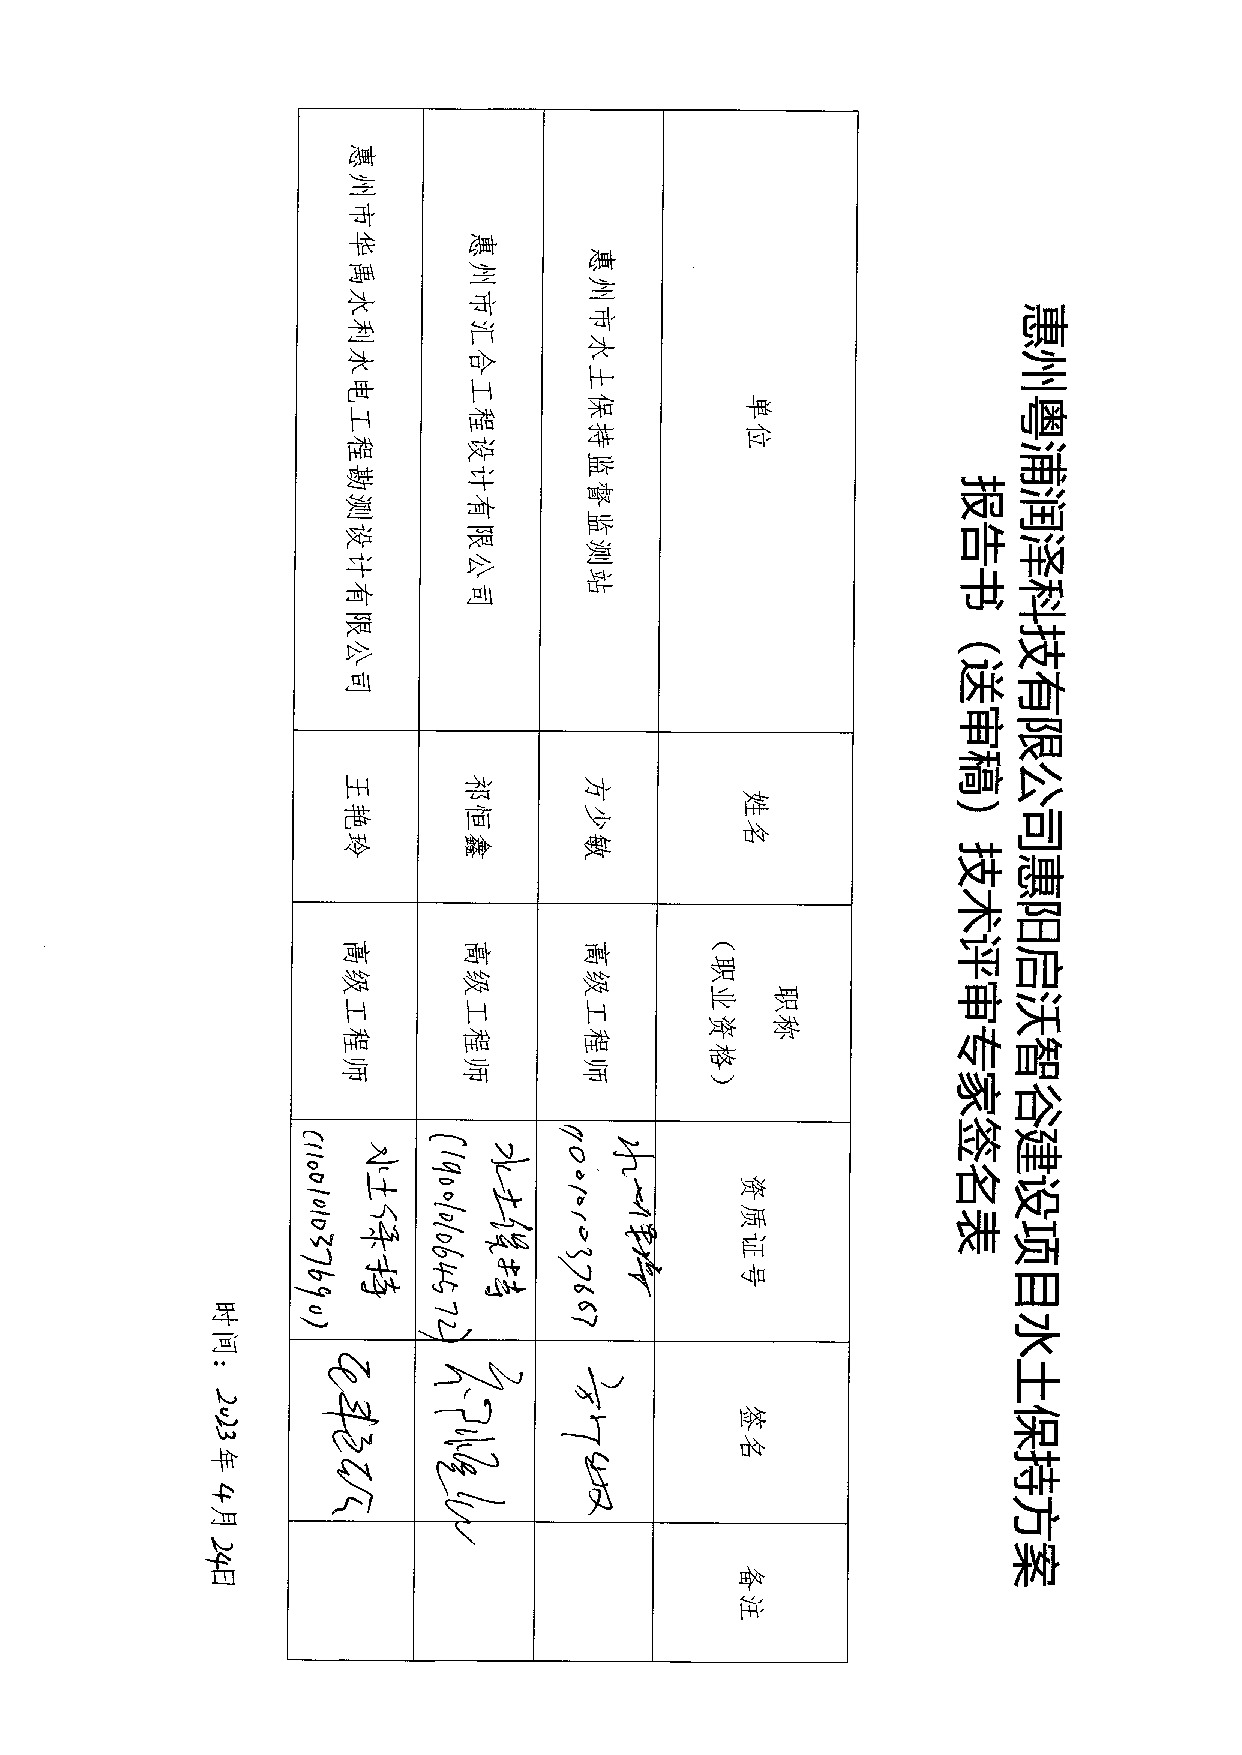 惠州粤浦润泽科技有限公司惠阳启沃智谷建设项目水土保持方案
报告书（送审稿）技术评审专家签名表
单位 姓名 职称（职业资格） 资质证号 签名 备注
惠州市水土保持监督监测站 方少敏 高级工程师 方少敏
惠州市汇合工程设计有限公司 祁恒鑫 高级工程师 水土保持 (1900101064572) 祁恒鑫
惠州市华禹水利水电工程勘测设计有限公司 王艳玲 高级工程师 水土保持
时间：2023年4月24日